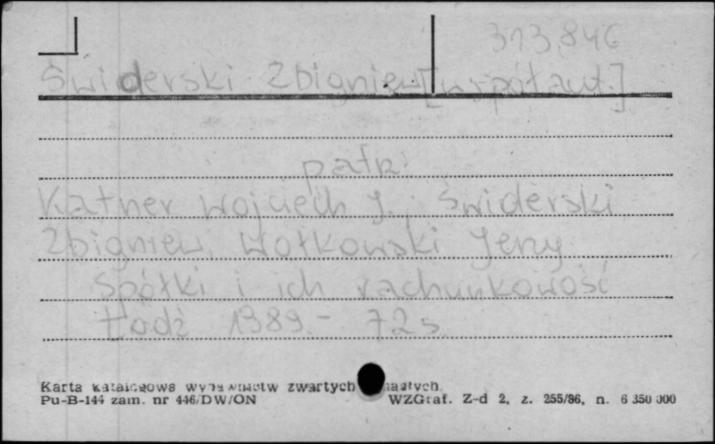 313846
Świderski Zbigniew [współaut.]
patrz:
Katner Wojciech J., Świderski
Zbigniew, Wołkowski Jerzy
Spółki i ich rachunkowość
Łódź 1989.- 72 s.
Karta katalogowa wydawnictw zwartych
Pu-B-144 zam. nr 446/DW/ON WZGraf. Z-d 2, z. 255/86, n. 6 350 000